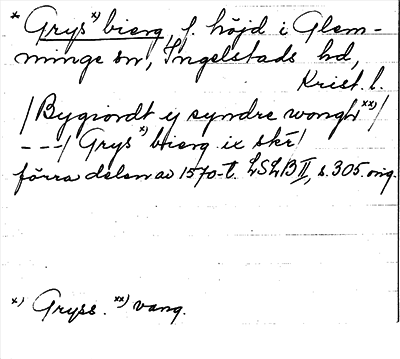 * Grys x) bierg, f. höjd i Glem-
minge sn, Ingelstads hd,
Krist. l.
/Bygiordt ij syndre wongh xx)/
---/ Grys x) bierg ix skr/
förra delen av 1570-t. LSLB II, s. 305. orig.
x) Gryss. xx) vang.